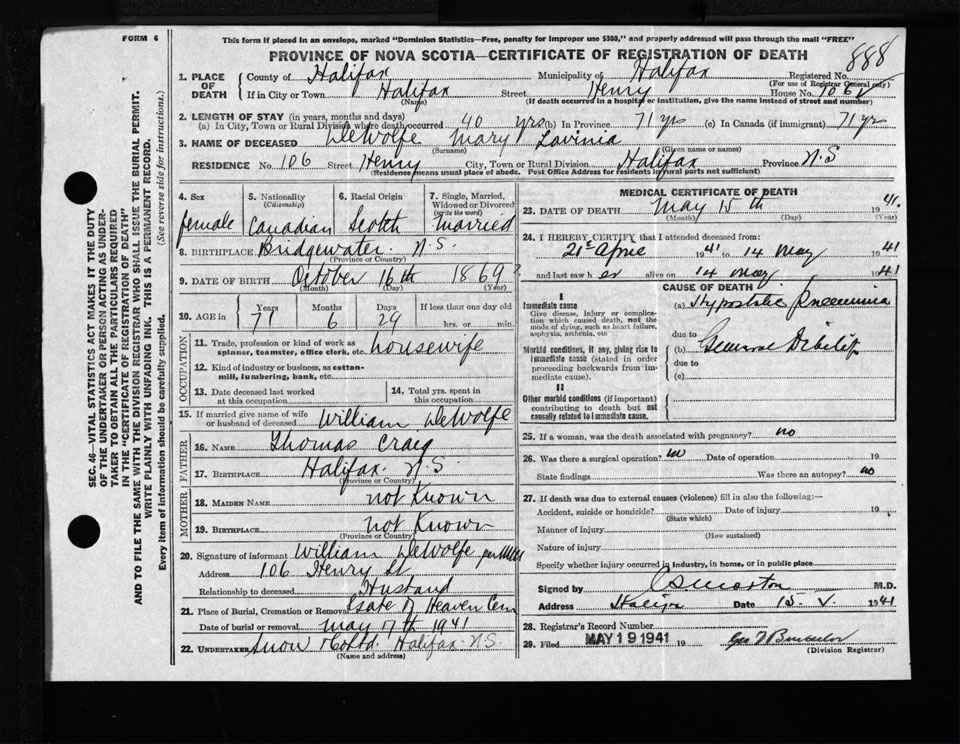 FORM 6
This form if placed in an envelope, marked "Dominion Statistics—Free, penalty for improper use $300," and properly addressed will pass through the mail "FREE"
888
PROVINCE OF NOVA SCOTIA—CERTIFICATE OF REGISTRATION OF DEATH
1. PLACE OF DEATH
County of Halifax Municipality of Halifax Registered No.
(For use of Registrar General only)
If in City or Town Halifax Street Henry House No. 106
(Name) (If death occurred in a hospital or institution, give the name instead of street and number)
2. LENGTH OF STAY (in years, months and days)
(a) In City, Town or Rural Division where death occurred 40 yrs (b) In Province 71 yrs (c) In Canada (if immigrant) 71 yrs
3. NAME OF DECEASED DeWolfe Mary Lavinia
(Surname) (Given name or names)
RESIDENCE No. 106 Street Henry City, Town or Rural Division Halifax Province N.S
(Residence means usual place of abode. Post Office Address for residents in rural parts not sufficient)
4. Sex
female
5. Nationality
(Citizenship)
Canadian
6. Racial Origin
Scotch
7. Single, Married, Widowed or Divorced
(write the word)
Married
8. BIRTHPLACE Bridgewater N.S.
(Province or Country)
9. DATE OF BIRTH October 16th 1869
(Month) (Day) (Year)
10. AGE in
Years Months Days If less than one day old
71 6 29 hrs. or min.
OCCUPATION
11. Trade, profession or kind of work as
spinner, teamster, office clerk, etc. housewife
12. Kind of industry or business, as cotton-
mill, lumbering, bank, etc.
13. Date deceased last worked
at this occupation
14. Total yrs. spent in
this occupation
15. If married give name of wife
or husband of deceased William DeWolfe
FATHER
16. NAME Thomas Craig
17. BIRTHPLACE Halifax N.S
(Province or Country)
MOTHER
18. MAIDEN NAME not Known
19. BIRTHPLACE not Known
(Province or Country)
20. Signature of informant William DeWolfe per
Address 106 Henry St
Relationship to deceased Husband
21. Place of Burial, Cremation or Removal Gate of Heaven Cem
Date of burial or removal May 17th 1941
22. UNDERTAKER Snow & Co Ltd. Halifax N.S.
(Name and address)
MEDICAL CERTIFICATE OF DEATH
23. DATE OF DEATH May 15th 1941.
(Month) (Day) (Year)
24. I HEREBY CERTIFY that I attended deceased from:
21st April 1941 to 14 May 1941
and last saw her alive on 14 May 1941
CAUSE OF DEATH
I
Immediate cause
Give disease, injury or complication which caused death, not the mode of dying, such as heart failure, asphyxia, asthenia, etc
(a) Hypostatic Pneumonia
due to
Morbid conditions, if any, giving rise to immediate cause (stated in order proceeding backwards from immediate cause).
(b) General Debility
due to
(c)
II
Other morbid conditions (if important) contributing to death but not causally related to immediate cause.
25. If a woman, was the death associated with pregnancy? no
26. Was there a surgical operation? no Date of operation 19
State findings Was there an autopsy? no
27. If death was due to external causes (violence) fill in also the following:—
Accident, suicide or homicide? Date of injury 19
(State which)
Manner of injury
(How sustained)
Nature of injury
Specify whether injury occurred in industry, in home, or in public place
Signed by Morton M.D.
Address Halifax Date 15. V. 1941
28. Registrar's Record Number
29. Filed MAY 19 1941 19
(Division Registrar)
SEC. 46—VITAL STATISTICS ACT MAKES IT THE DUTY
OF THE UNDERTAKER OR PERSON ACTING AS UNDER-
TAKER TO OBTAIN ALL THE PARTICULARS REQUIRED
IN THE "CERTIFICATE OF REGISTRATION OF DEATH"
AND TO FILE THE SAME WITH THE DIVISION REGISTRAR WHO SHALL ISSUE THE BURIAL PERMIT.
WRITE PLAINLY WITH UNFADING INK. THIS IS A PERMANENT RECORD.
Every item of information should be carefully supplied. (See reverse side for instructions.)